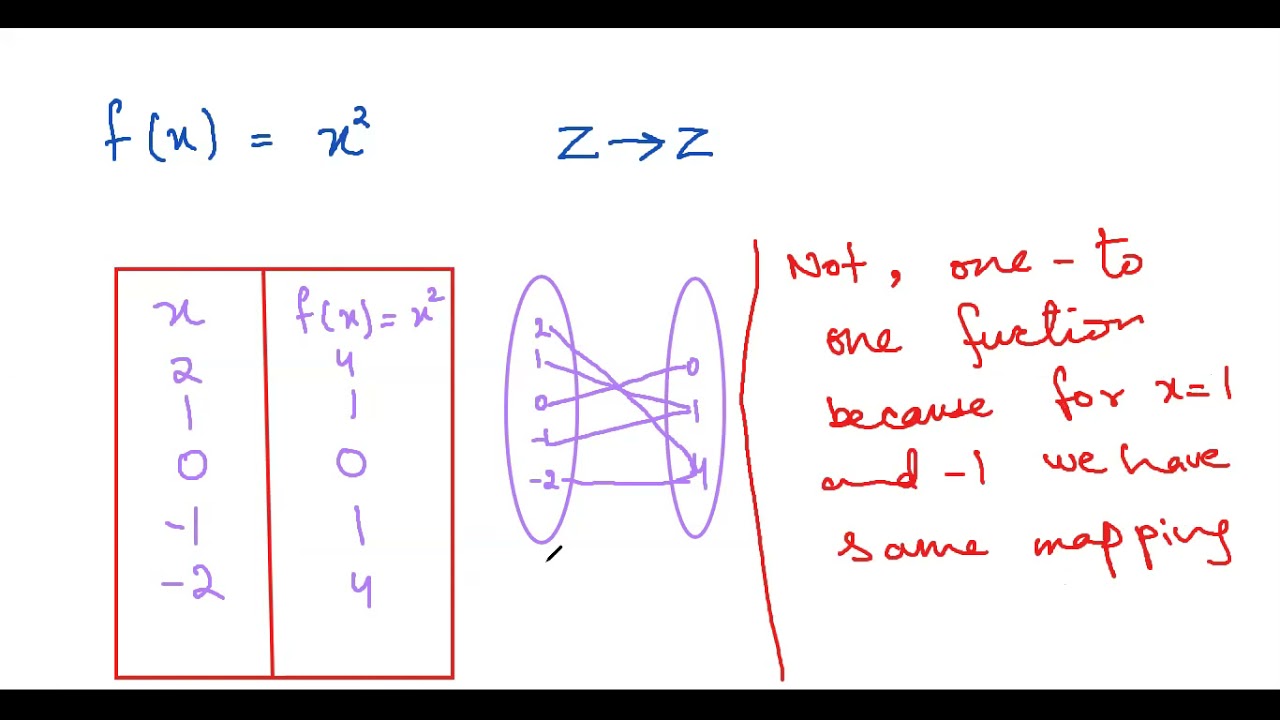 f(x) = x² Z→Z
x f(x) = x²
2 4
1 1
0 0
-1 1
-2 4
2
1
0
-1
-2
0
1
4
Not, one-to
one fuction
because for x=1
and -1 we have
same mapping